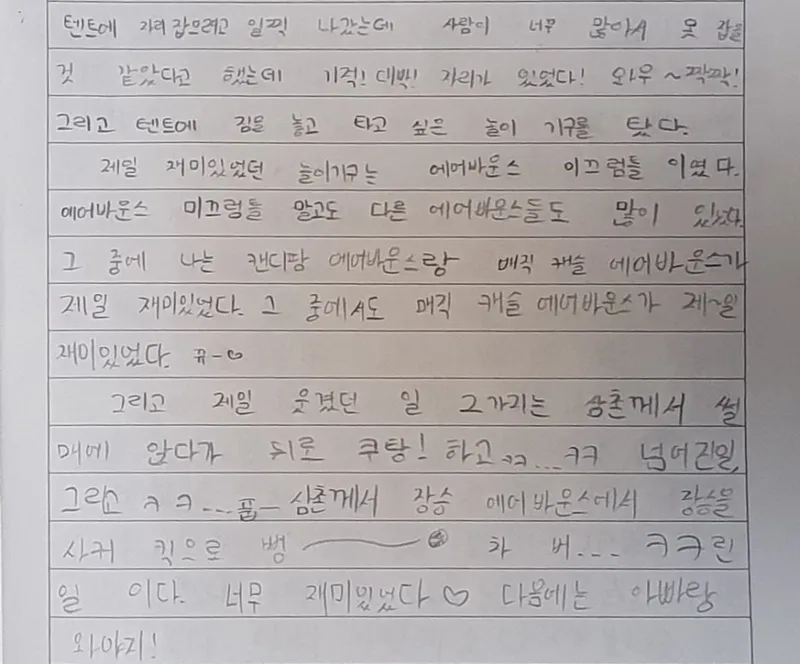 텐트에 자리 잡으려고 일찍 나갔는데 사람이 너무 많아서 못 잡을
것 같았다고 했는데 기적! 대박! 자리가 있었다! 와우~짝짝!
그리고 텐트에 짐을 놓고 타고 싶은 놀이 기구를 탔다.
제일 재미있었던 놀이기구는 에어바운스 미끄럼틀 이였다.
에어바운스 미끄럼틀 말고도 다른 에어바운스들도 많이 있었다.
그 중에 나는 캔디팡 에어바운스랑 매직 캐슬 에어바운스가
제일 재미있었다. 그 중에서도 매직 캐슬 에어바운스가 제~일
재미있었다. 뀨-♡
그리고 제일 웃겼던 일 2가지는 삼촌께서 썰
매에 앉다가 뒤로 쿠탕! 하고ㅋㅋ...ㅋㅋ 넘어진일,
그리고 ㅋㅋ...풉- 삼촌께서 장승 에어바운스에서 장승을
사커 킥으로 뻥 차 버....ㅋㅋ린
일 이다. 너무 재미있었다♡ 다음에는 아빠랑
와야지!